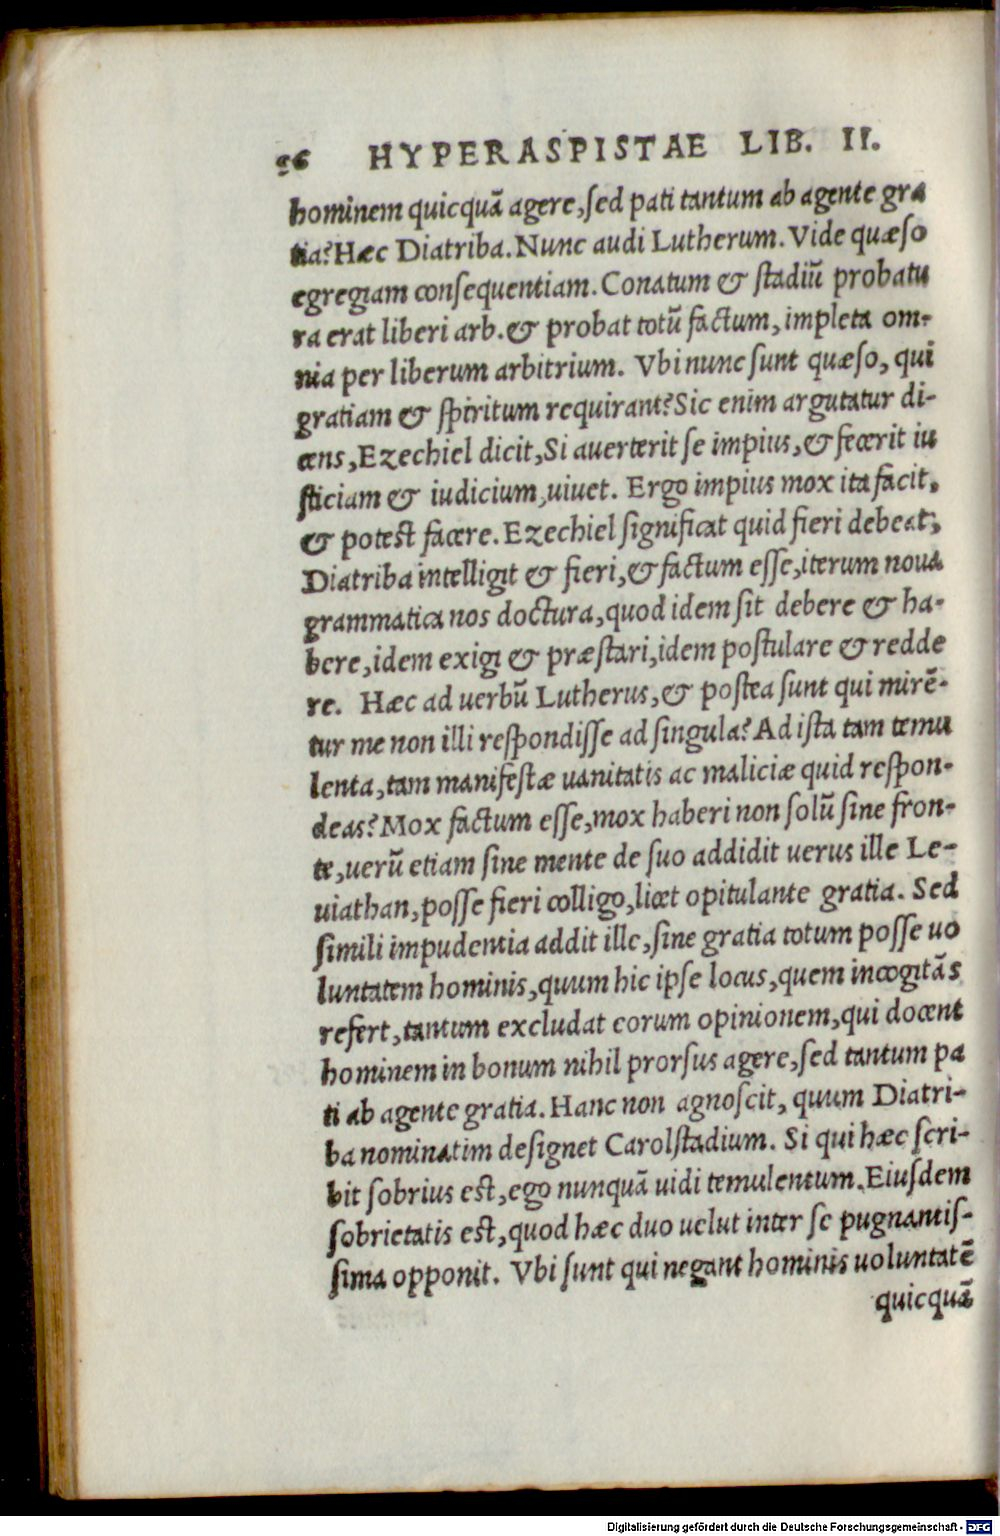 96 HYPERASPISTAE LIB. II.
hominem quicquã agere, sed pati tantum ab agente gra
tia? Hæc Diatriba. Nunc audi Lutherum. Vide quæso
egregiam consequentiam. Conatum & stadiũ probatu
ra erat liberi arb. & probat totũ factum, impleta om-
nia per liberum arbitrium. Vbi nunc sunt quæso, qui
gratiam & spiritum requirant? Sic enim argutatur di-
cens, Ezechiel dicit, Si auerterit se impius, & fecerit iu
sticiam & iudicium, uiuet. Ergo impius mox ita facit,
& potest facere. Ezechiel significat quid fieri debeat,
Diatriba intelligit & fieri, & factum esse, iterum noua
grammatica nos doctura, quod idem sit debere & ha-
bere, idem exigi & præstari, idem postulare & redde
re. Hæc ad uerbũ Lutherus, & postea sunt qui mirẽ-
tur me non illi respondisse ad singula? Ad ista tam temu
lenta, tam manifestæ uanitatis ac maliciæ quid respon-
deas? Mox factum esse, mox haberi non solũ sine fron-
te, uerũ etiam sine mente de suo addidit uerus ille Le-
uiathan, posse fieri colligo, licet opitulante gratia. Sed
simili impudentia addit ille, sine gratia totum posse uo
luntatem hominis, quum hic ipse locus, quem incogitãs
refert, tantum excludat eorum opinionem, qui docent
hominem in bonum nihil prorsus agere, sed tantum pa
ti ab agente gratia. Hanc non agnoscit, quum Diatri-
ba nominatim designet Carolstadium. Si qui hæc scri-
bit sobrius est, ego nunquã uidi temulentum. Eiusdem
sobrietatis est, quod hæc duo uelut inter se pugnantis-
sima opponit. Vbi sunt qui negant hominis uoluntatẽ
quicquã
Digitalisierung gefördert durch die Deutsche Forschungsgemeinschaft - DFG